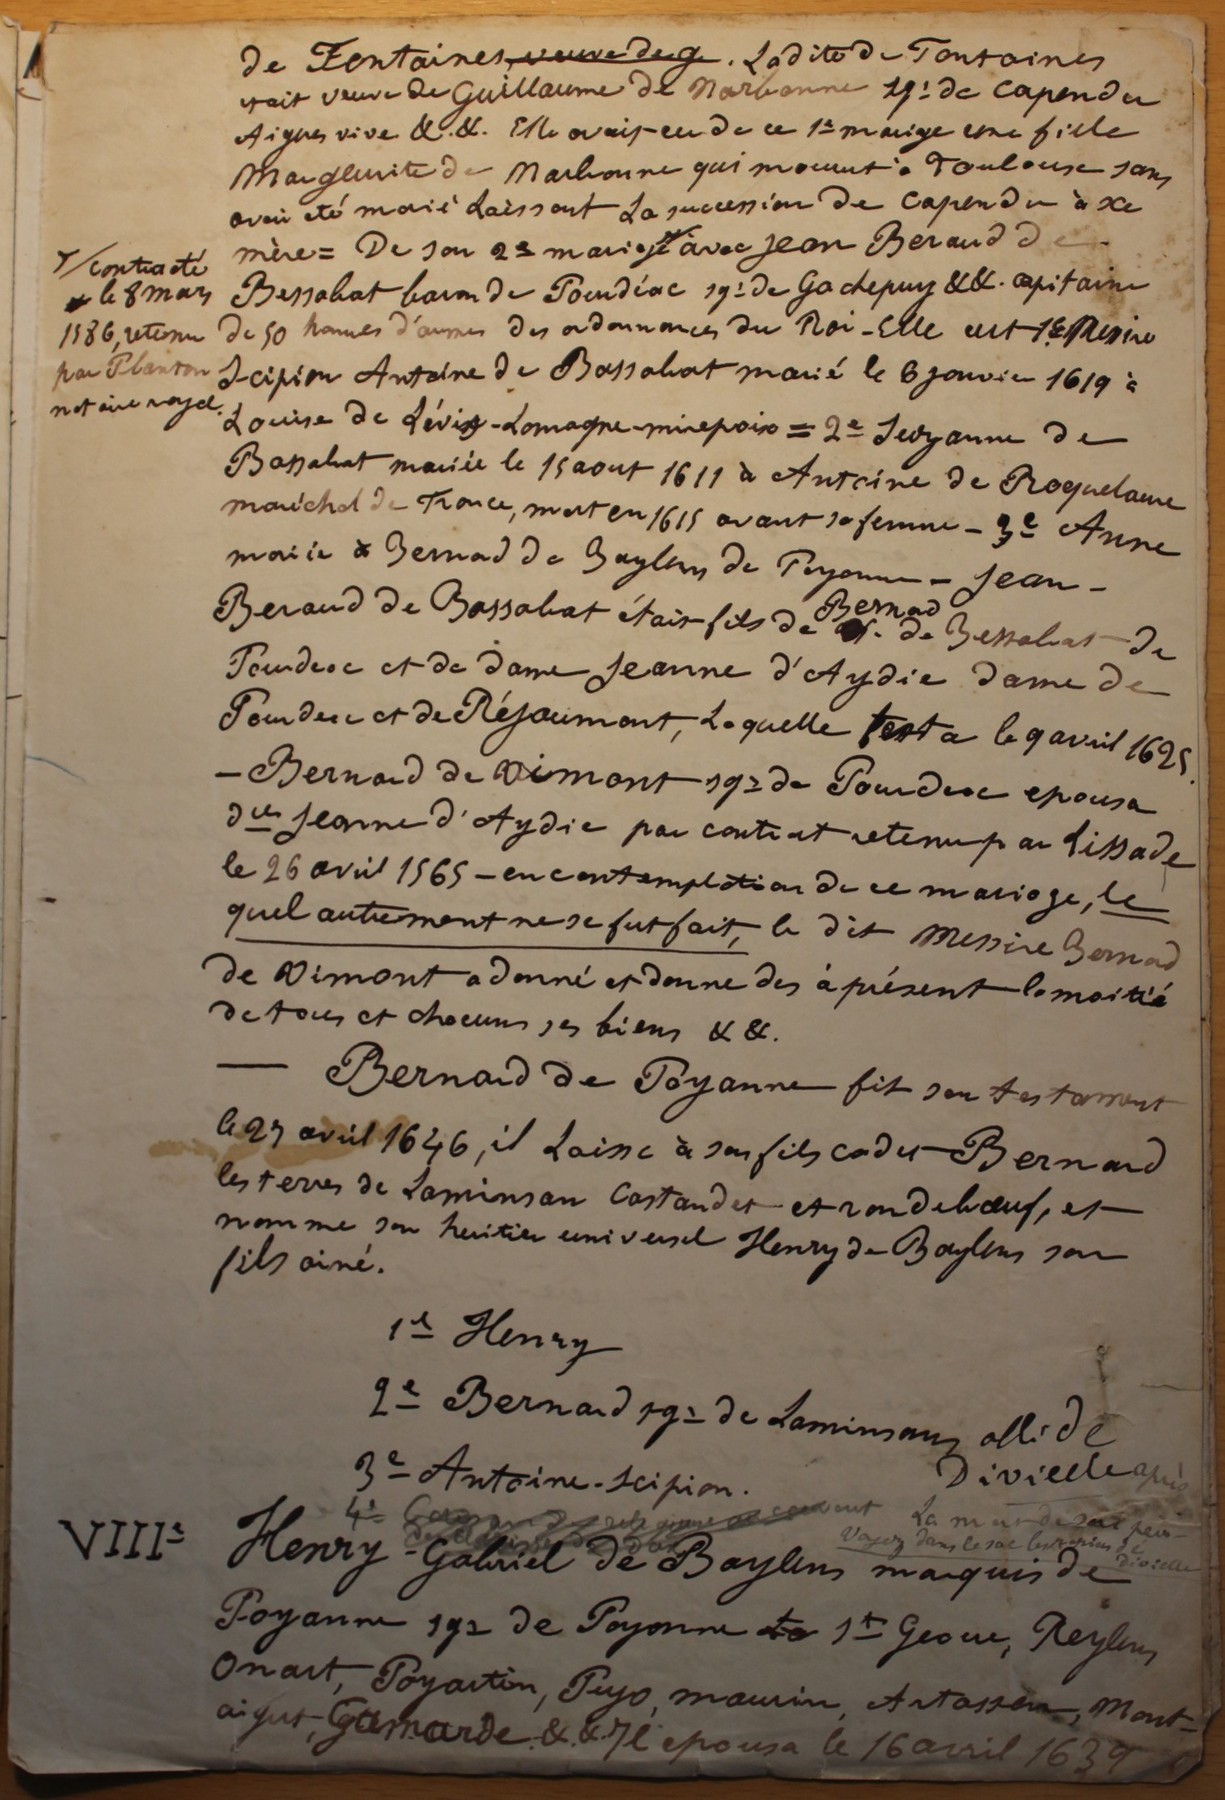 de Fontaines, veuve de g. Ladite de Fontaines
était veuve de Guillaume de Narbonne sgr de Capendu
Aigues vive &.&. Elle avait eu de ce 1er mariage une fille
Marguerite de Narbonne qui mourut à Toulouse sans
avoir été marié laissant la succession de Capendu à sa
mère = De son 2e mariage avec Jean Beraud de
Bassabat baron de Pourdéac sgr de Gachepuy &&. capitaine
de 50 hommes d'armes des ordonnances du Roi - Elle eut 1e Messire
Scipion Antoine de Bassabat marié le 6 janvier 1619 à
Louise de Lévis-Lomagne-mirepoix = 2e Suzanne de
Bassabat mariée le 15 aout 1611 à Antoine de Roquelaure
maréchal de France, mort en 1615 avant sa femme - 3e Anne
mariée à Bernad de Baylens de Poyanne - Jean -
Beraud de Bassabat était fils de Bernad de Bessabat de
Pourdeac et de dame Jeanne d'Aydie dame de
Pourdeac et de Réjaumont, Laquelle testa le 9 avril 1625.
- Bernard de Vimont sgr de Pourdeac epousa
dlle Jeanne d'Aydie par contrat retenu par Lissade
le 26 avril 1565 - en contemplation de ce mariage, le
quel autrement ne se fut fait, le dit Messire Bernad
de Vimont a donné et donne des à présent la moitié
de tous et chacuns ses biens &&.
— Bernard de Poyanne fit son testament
le 27 avril 1646, il laisse à son fils cadet Bernard
les terres de Laminsan Castandet et rondebœuf, et
nomme son heritier universel Henry de Baylens son
fils ainé.
Y/ contracté
le 8 mars
1586, retenu
par Planton
notaire royal.
1e Henry
2e Bernard sgr de Laminsans abbé de
Divielle après
3e Antoine-Scipion.
La mort de son père
4e
religieuse au couvent
Voyez dans le sac les papiers de
Divielle
VIIIe Henry-Gabriel de Baylens marquis de
Poyanne sgr de Poyanne St Geour, Reylens
Onart, Poyartin, Puyo, maurin, Artassen, Mont-
aigut, Gamarde &.& Il epousa le 16 avril 1639